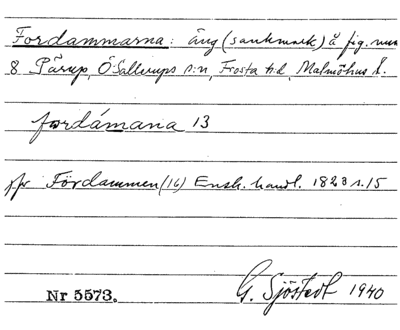 Fordammarna: äng (sankmark) å fig. num
8 Pärup, Ö. Sallerups s:n, Frosta hd, Malmöhus l.
fordámana 13
jfr Fördammen (16) Ensk. handl. 1828 s. 15
Nr 5573. G. Sjöstedt 1940